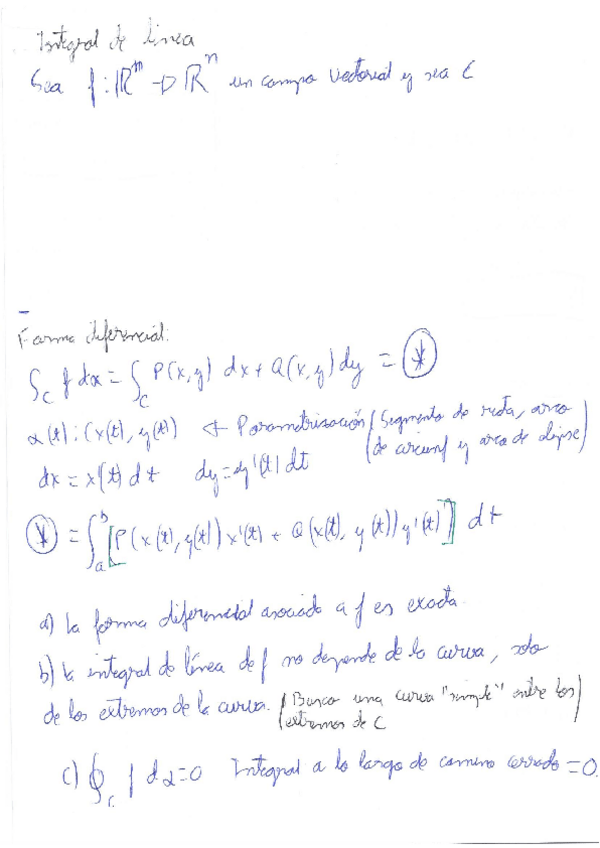 Integral de linea
Sea f: ℝ^m → ℝ^n un campo vectorial y sea C
Forma diferencial:
∫_C f dα = ∫_C P(x,y) dx + Q(x,y) dy = (*)
α(t): (x(t), y(t)) ← Parametrización (Segmento de recta, arco
de circunf y arco de elipse)
dx = x'(t) dt   dy = y'(t) dt
(*) = ∫_a^b [P(x(t), y(t)) x'(t) + Q(x(t), y(t)) y'(t)] dt
a) la forma diferencial asociada a f es exacta.
b) la integral de línea de f no depende de la curva, solo
de los extremos de la curva. (Busco una curva "simple" entre los
extremos de C)
c) ∮_C f dα = 0   Integral a lo largo de camino cerrado = 0.